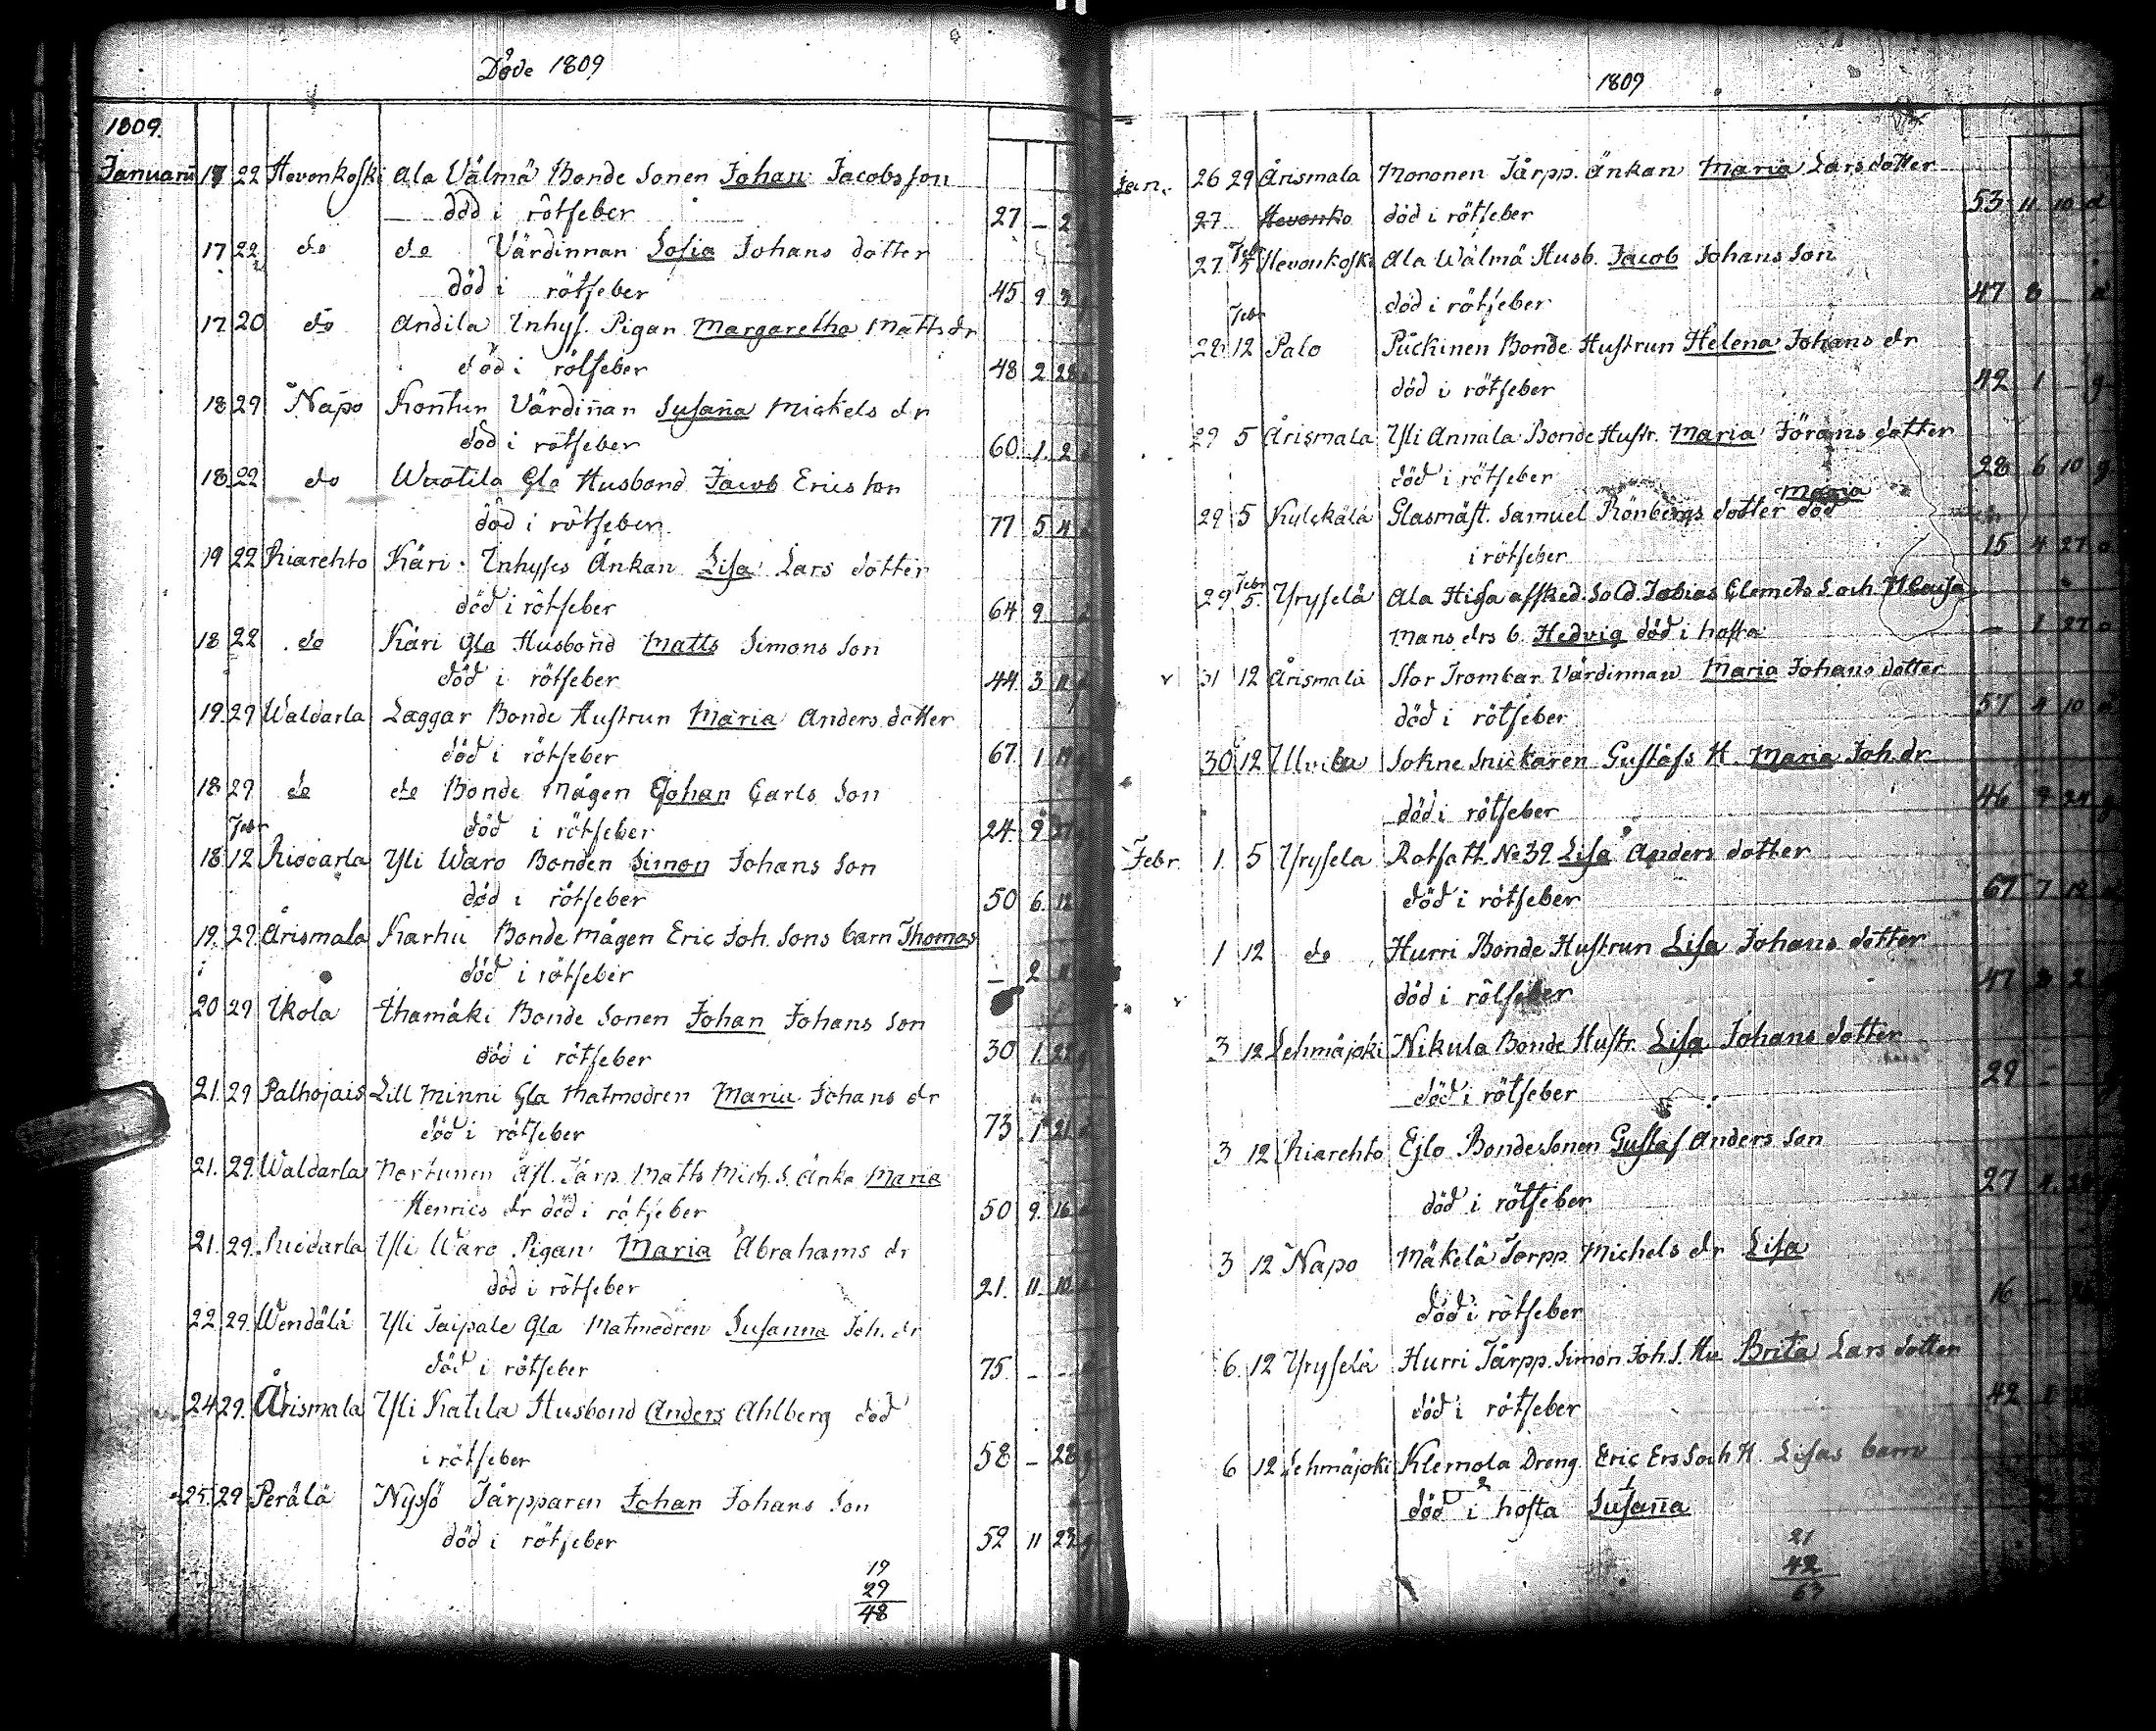 Döde 1809
1809.
Januarii 17 22 Hevonkoski Ala Välmä Bonde Sonen Johan Jacobsson
död i rötfeber 27 – 2
17 22 do do Värdinnan Sofia Johans dotter
död i rötfeber 45 9 3
17 20 do Andila Inhys. Pigan Margaretha Matts dr
död i rötfeber 48 2 28
18 29 Napo Kontur Värdiñan Susaña Mickels dr
död i rötfeber 60 1 2
18 22 do Wuotila Gla Husbond Jacob Erics son
död i rötfeber 77 5 4
19 22 Riarehto Käri Inhyses Änkan Lisa Lars dotter
död i rötfeber 64 9
18 22 do Käri Gla Husbond Matts Simons Son
död i rötfeber 44 3 11
19 29 Waldarla Laggar Bonde Hustrun Maria Anders dotter
död i rötfeber 67 1 19
18 29 do do Bonde Mågen Johan Carls Son
död i rötfeber 24 9 27
Febr
18 12 Riddarla Yli Waro Bonden Simon Johans Son
död i rötfeber 50 6 12
19 29 Årismala Karhu Bonde mågen Eric Joh. Sons barn Thomas
död i rötfeber – 2 11
20 29 Ikola Ihamäki Bonde Sonen Johan Johans Son
död i rötfeber 30 1 22
21 29 Palhojais Lill Minni Gla Matmodren Maria Johans dr
död i rötfeber 73 1 21
21 29 Waldarla Nortunen Afl. Tårp. Matts Mich. S. Änka Maria
Henrics dr död i rötfeber 50 9 16
21 29 Riddarla Yli Waro Pigan Maria Abrahams dr
död i rötfeber 21 11 10
22 29 Wendälä Yli Taipale Gla Matmodren Susanna Joh. dr
död i rötfeber 75 – –
24 29 Årismala Yli Katila Husbond Anders Ahlberg död
i rötfeber 58 – 28 g
25 29 Perälä Nyssö Tårpparen Johan Johans Son
död i rötfeber 52 11 23 g
19
29
48
1809
Jan. 26 29 Årismala Mononen Tårpp. Änkan Maria Larsdotter
27 Hevonko död i rötfeber 53 11 10
27 Feb 5 Hevonkoski Ala Wälmä Husb. Jacob Johans Son
död i rötfeber 47 8 –
Febr
28 12 Palo Puckinen Bonde Hustrun Helena Johans dr
död i rötfeber 42 1 – g
29 5 Årismala Yli Annala Bonde Hustr. Maria Jörans dotter
död i rötfeber 28 6 10 g
Maria
29 5 Kylckälä Glasmäst. Samuel Rönbergs dotter död
i rötfeber 15 4 27 o
Febr
29 5. Yrysela Ala Hisa afsked. Sold. Tobias Clemets S. och H. Caisa
Mans drs b. Hedvig död i hosta – 1 27 o
31 12 Årismala Stor Trombar Värdinnan Maria Johans dotter
död i rötfeber 57 4 10
30 12 Ullvila Sokne Snickaren Gustafs H. Maria Joh. dr
död i rötfeber 46 9 24 g
Febr. 1 5 Yrysela Rotsatt. No 39 Lisa Anders dotter
död i rötfeber 67 7 12
1 12 do Hurri Bonde Hustrun Lisa Johans dotter
död i rötfeber 47 2
3 12 Lehmäjoki Nikula Bonde Hustr. Lisa Johans dotter
död i rötfeber 29
3 12 Riarehto Ejlo Bonde Sonen Gustaf Anders Son
död i rötfeber 27
3 12 Napo Mäkelä Torpp. Michels dr Lisa
död i rötfeber 16 –
6 12 Yrysela Hurri Tårpp. Simon Joh. S. Hu Brita Lars dotter
död i rötfeber 42
6 12 Lehmäjoki Klemola Dreng Eric Ers S och H. Lisas barn
död i hosta Susaña
21
42
63